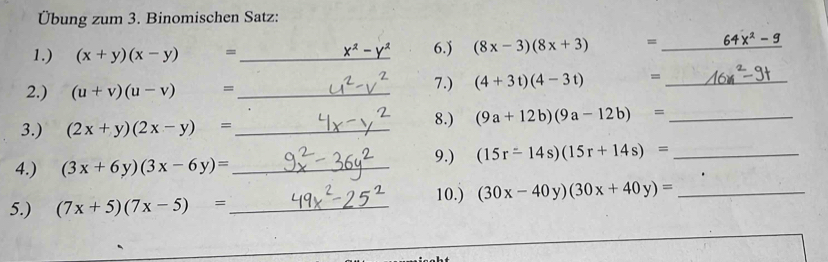 Übung zum 3. Binomischen Satz:
1.) (x + y)(x − y) = x² − y²
2.) (u + v)(u − v) = u² − v²
3.) (2x + y)(2x − y) = 4x − y²
4.) (3x + 6y)(3x − 6y) = 9x² − 36y²
5.) (7x + 5)(7x − 5) = 49x² − 25²
6.) (8x − 3)(8x + 3) = 64x² − 9
7.) (4 + 3t)(4 − 3t) =
8.) (9a + 12b)(9a − 12b) =
9.) (15r − 14s)(15r + 14s) =
10.) (30x − 40y)(30x + 40y) =